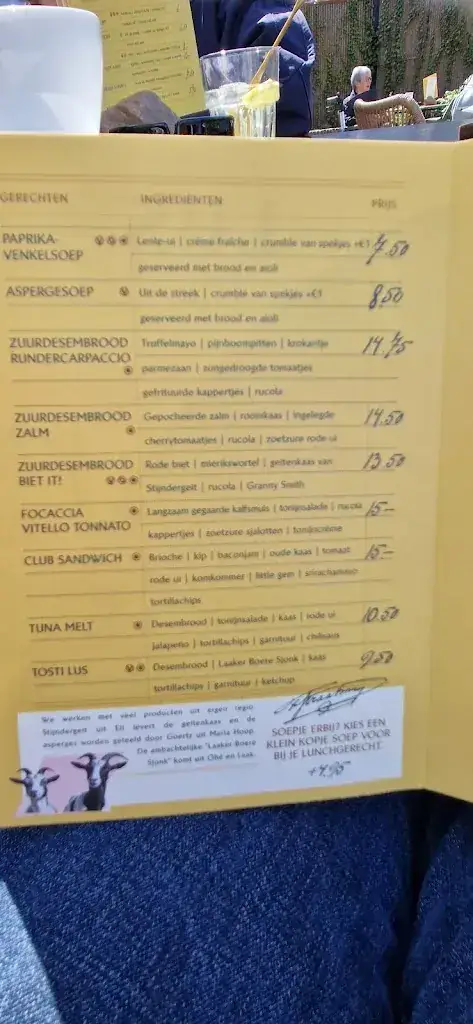 GERECHTEN INGREDIËNTEN PRIJS
PAPRIKA- Lente-ui | crème fraîche | crumble van spekjes +€1 7.50
VENKELSOEP geserveerd met brood en aioli
ASPERGESOEP Uit de streek | crumble van spekjes +€1 8.50
geserveerd met brood en aioli
ZUURDESEMBROOD Truffelmayo | pijnboompitten | krokantje 14.75
RUNDERCARPACCIO parmezaan | zongedroogde tomaatjes
gefrituurde kappertjes | rucola
ZUURDESEMBROOD Gepocheerde zalm | roomkaas | ingelegde 14.50
ZALM cherrytomaatjes | rucola | zoetzure rode ui
ZUURDESEMBROOD Rode biet | mierikswortel | geitenkaas van 13.50
BIET IT! Stijndergeit | rucola | Granny Smith
FOCACCIA Langzaam gegaarde kalfsmuis | tonijnsalade | rucola 15.–
VITELLO TONNATO kappertjes | zoetzure sjalotten | tonijncrème
CLUB SANDWICH Brioche | kip | baconjam | oude kaas | tomaat 15.–
rode ui | komkommer | little gem | srirachamayo
tortillachips
TUNA MELT Desembrood | tonijnsalade | kaas | rode ui 10.50
jalapeño | tortillachips | garnituur | chilisaus
TOSTI LUS Desembrood | Laaker Boere Sjonk | kaas 9.50
tortillachips | garnituur | ketchup
We werken met veel producten uit eigen regio.
Stijndergeit uit Ell levert de geitenkaas en de
asperges worden geteeld door Goertz uit Maria Hoop.
De ambachtelijke "Laaker Boere
Sjonk" komt uit Ohé en Laak.
SOEPJE ERBIJ? KIES EEN
KLEIN KOPJE SOEP VOOR
BIJ JE LUNCHGERECHT.
+4.95